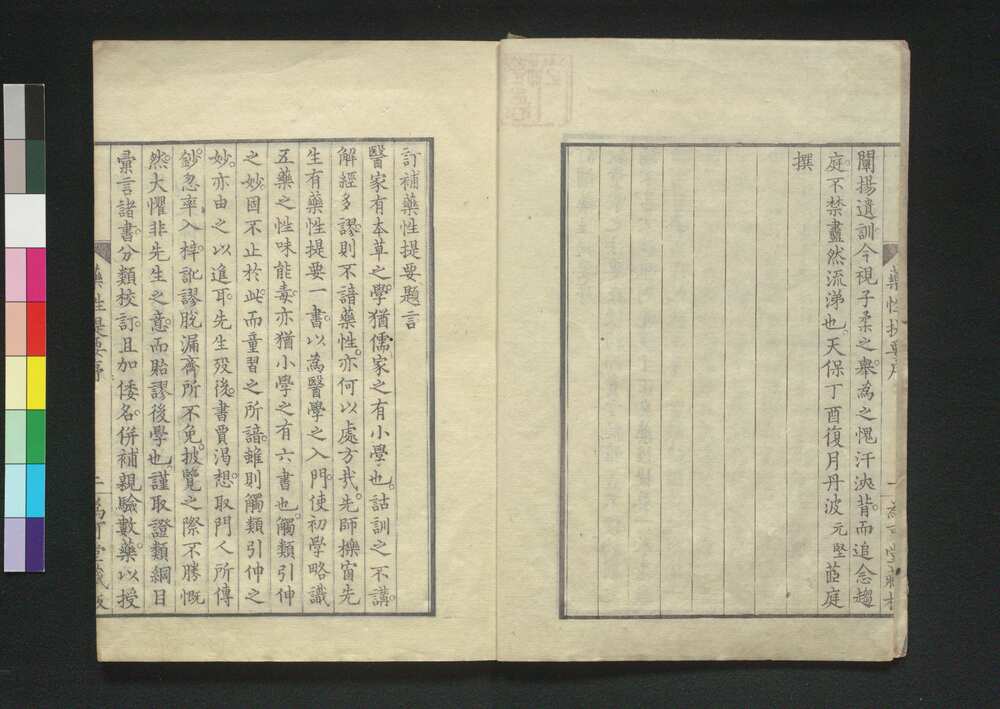 闡揚遺訓今視子柔之舉為之愧汗浹背而追念趨
庭不禁盡然流涕也。天保丁酉復月丹波元堅茝庭
撰
藥性提要序
訂補藥性提要題言
醫家有本草之學。猶儒家之有小學也。詁訓之不講。
解經多謬。則不諳藥性。亦何以處方哉。先師櫟窗先
生有藥性提要一書。以為醫學之入門。使初學略識
五藥之性味能毒。亦猶小學之有六書也。觸類引伸
之妙。固不止於此。而童習之所諳。雖則觸類引伸之
妙。亦由之以進耳。先生歿後。書賈渴想。取門人所傳
鈔。忽率入梓。訛謬脫漏齊所不免。披覽之際不勝慨
然。大懼非先生之意。而貽謬後學也。謹取證類綱目
彙言諸書。分類校訂。且加倭名。併補親驗數藥。以授
藥性提要序
二